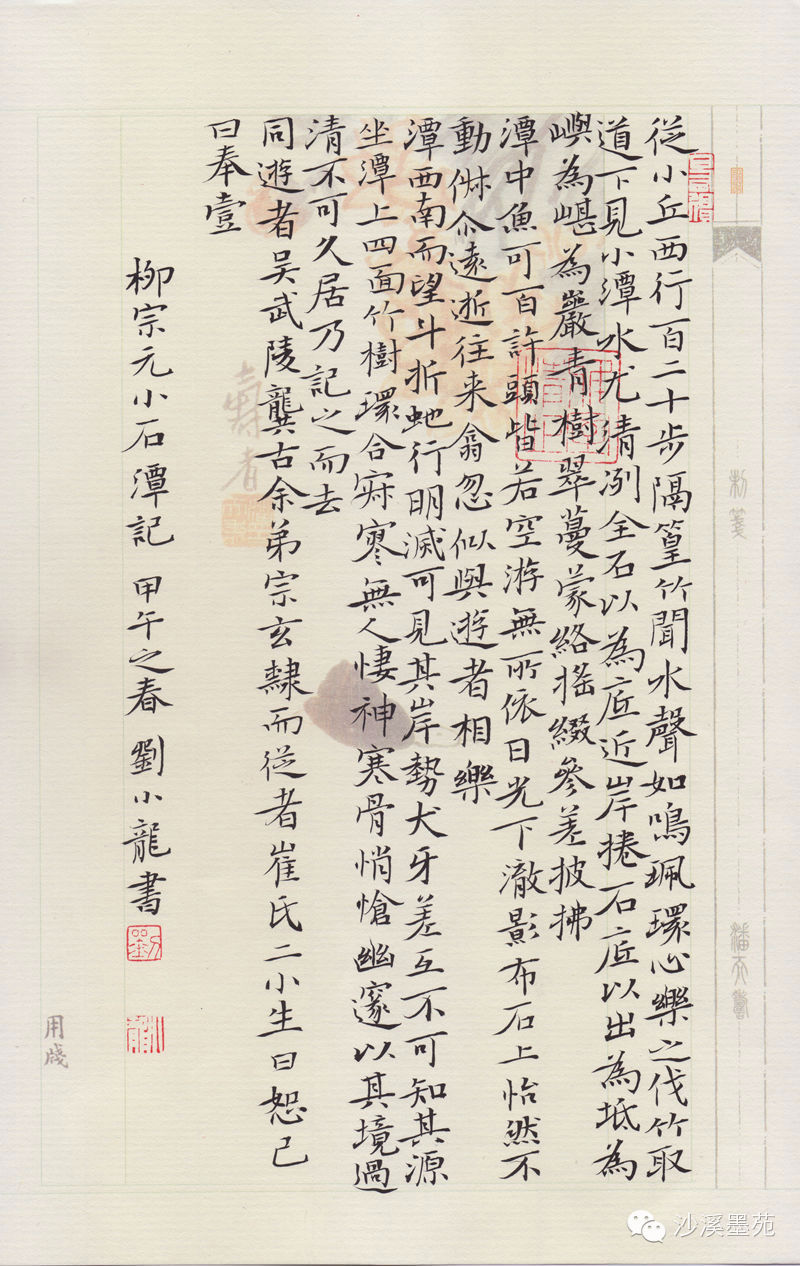 從小丘西行百二十步隔篁竹聞水聲如鳴珮環心樂之伐竹取
道下見小潭水尤清冽全石以為底近岸捲石底以出為坻為
嶼為嵁為巖青樹翠蔓蒙絡搖綴參差披拂
潭中魚可百許頭皆若空游無所依日光下澈影布石上怡然不
動俶尒遠逝往来翕忽似與遊者相樂
潭西南而望斗折虵行明滅可見其岸勢犬牙差互不可知其源
坐潭上四面竹樹環合寂寥無人悽神寒骨悄愴幽邃以其境過
清不可久居乃記之而去
同遊者吳武陵龔古余弟宗玄隸而從者崔氏二小生曰恕己
曰奉壹
柳宗元小石潭記 甲午之春 劉小龍書
劉
壽者
潘天壽
用牋
沙溪墨苑